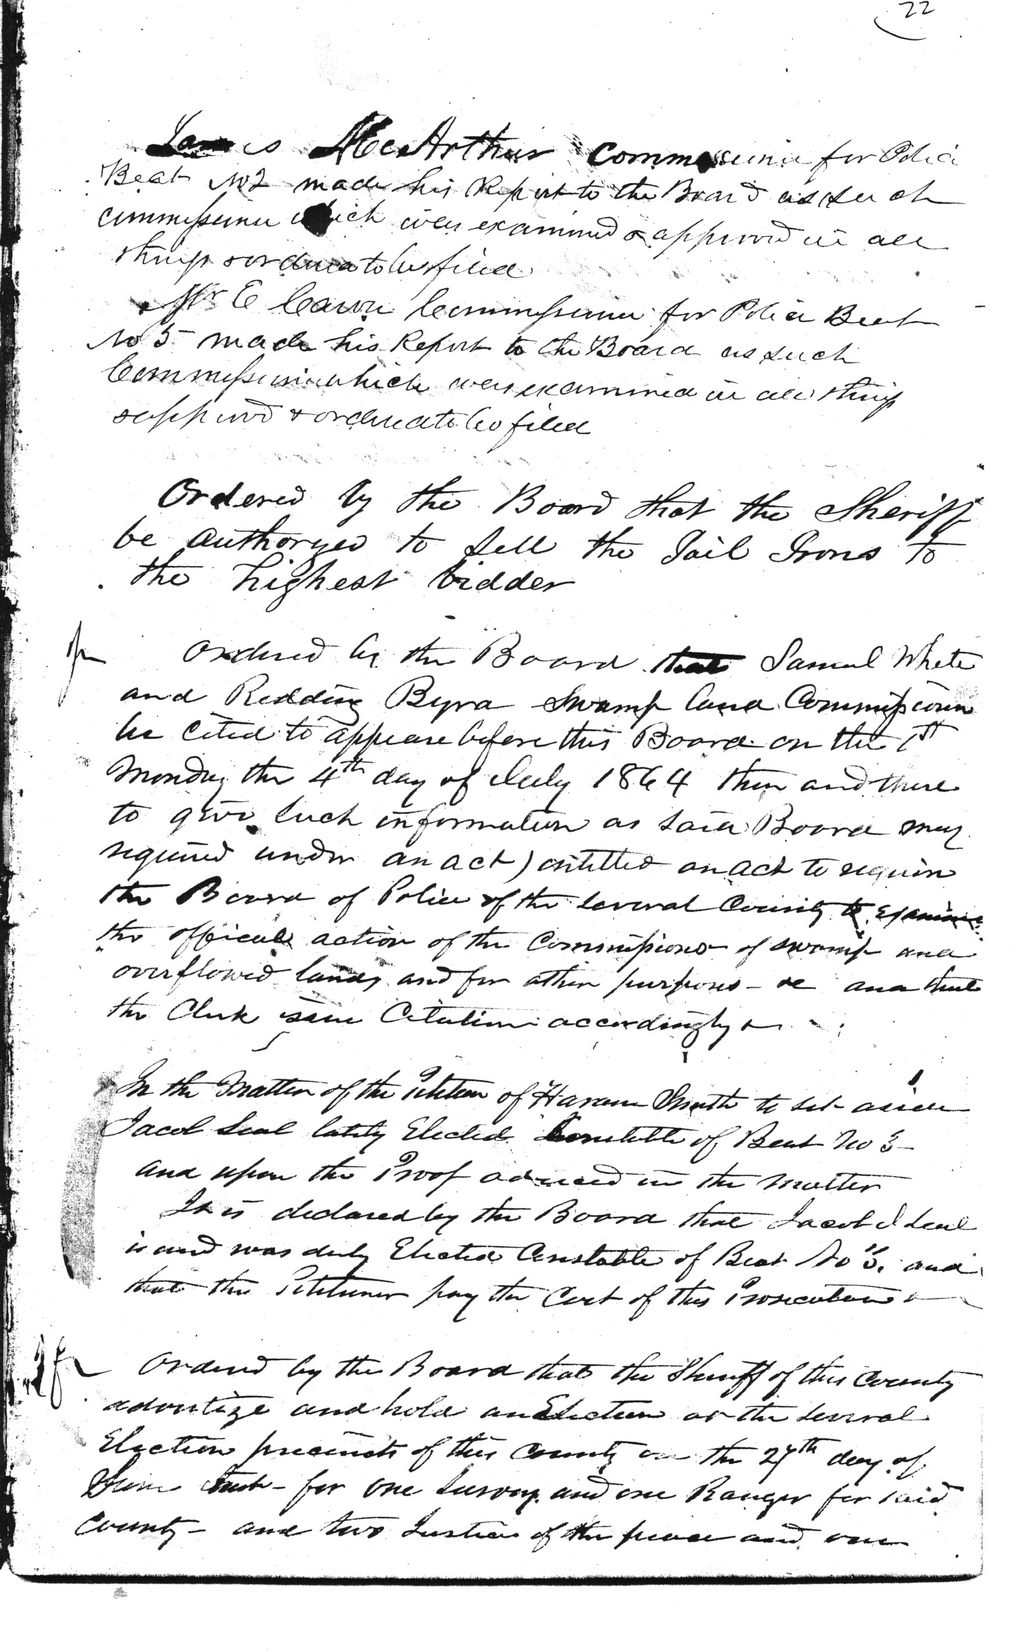 22
James McArthur Commissioner for Police
Beat No 2 made his Report to the Board as such
Commissioner which was examined & approved in all
things & ordered to be filed
Commissioner for Police Beat
No 5 made his Report to the Board as such
Commissioner which was examined in all things
approved & ordered to be filed
Ordered by the Board that the Sheriff
be authoryed to sell the Jail Irons to
the highest bidder
Ordered by the Board that Samuel White
and Redding Byrd Swamp land Commissioners
be cited to appear before this Board on the 1st
Monday the 4th day of July 1864 then and there
to give such information as said Board may
required under an act) entitled an act to require
the Board of Police of the several County to Examine
the official action of the Commissioners of swamp and
overflowed lands and for other purposes - &c and that
the Clerk issue Citation accordingly
In the Matter of the Petition of Haram Smith to set aside
Jacob Seal lately Elected Constable of Beat No 3 -
and upon the Proof adduced in the matter
It is declared by the Board that Jacob Seal
is and was duly Elected Constable of Beat No 3, and
that the Petitioner pay the Cost of this Prosecution
Ordered by the Board that the Sheriff of this County
advertize and hold an Election at the several
Election precincts of this County on the 27th day of
June for one Survey and one Ranger for said
County - and two Justices of the peace and one